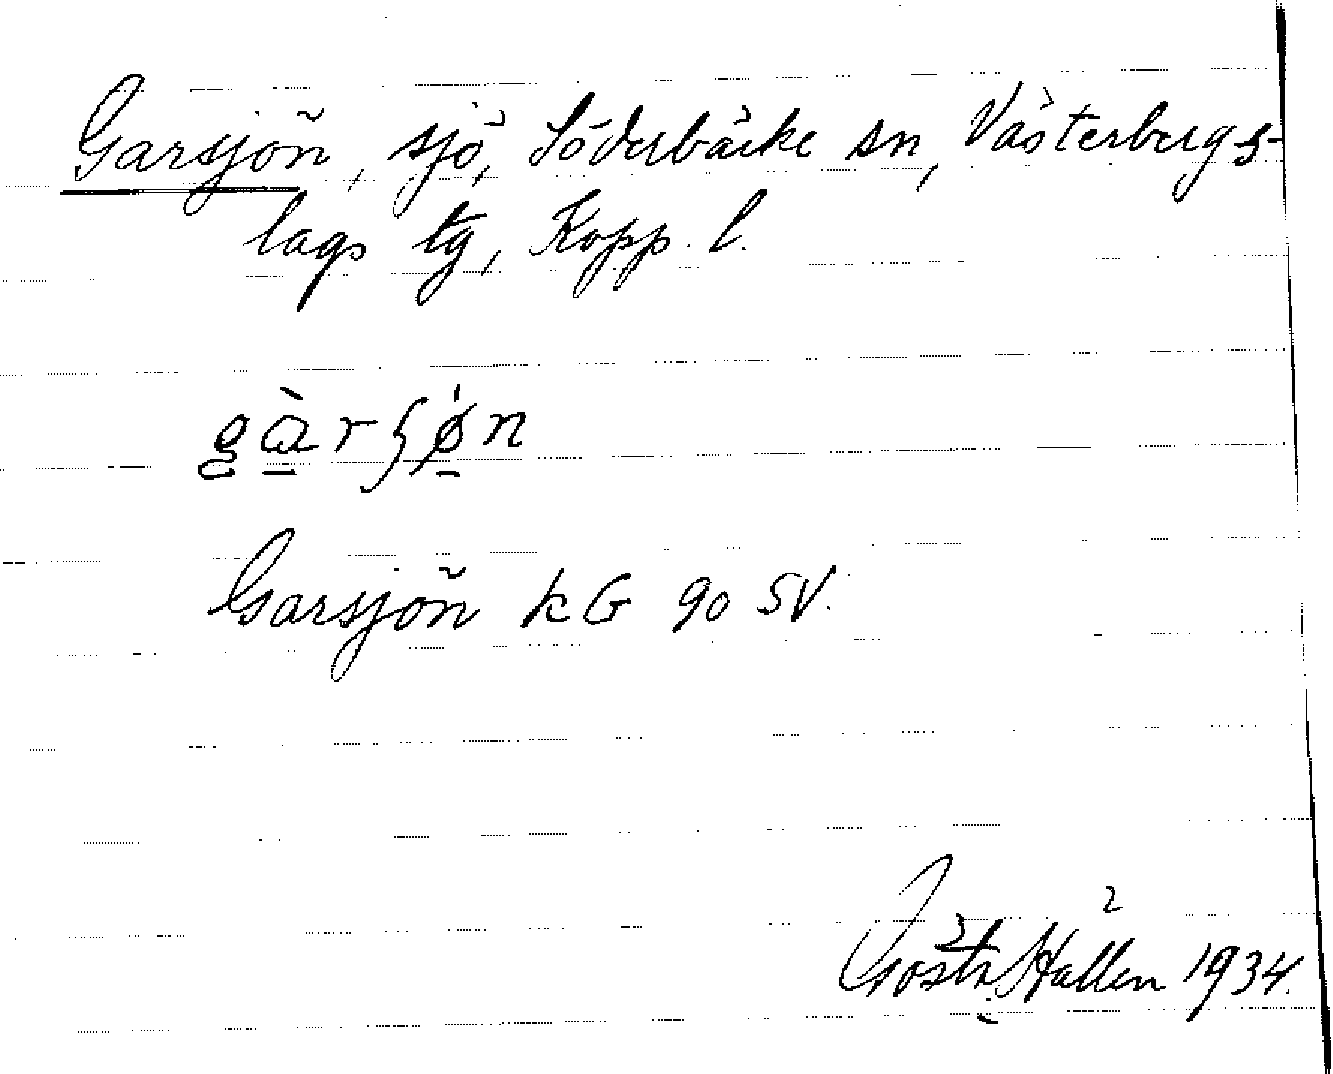 Garsjön, sjö, Söderbärke sn, Västerbergs-
lags tg, Kopp. l.
gàrʃø̀n
Garsjön kG 90 SV.
Gösta Hallén 1934.